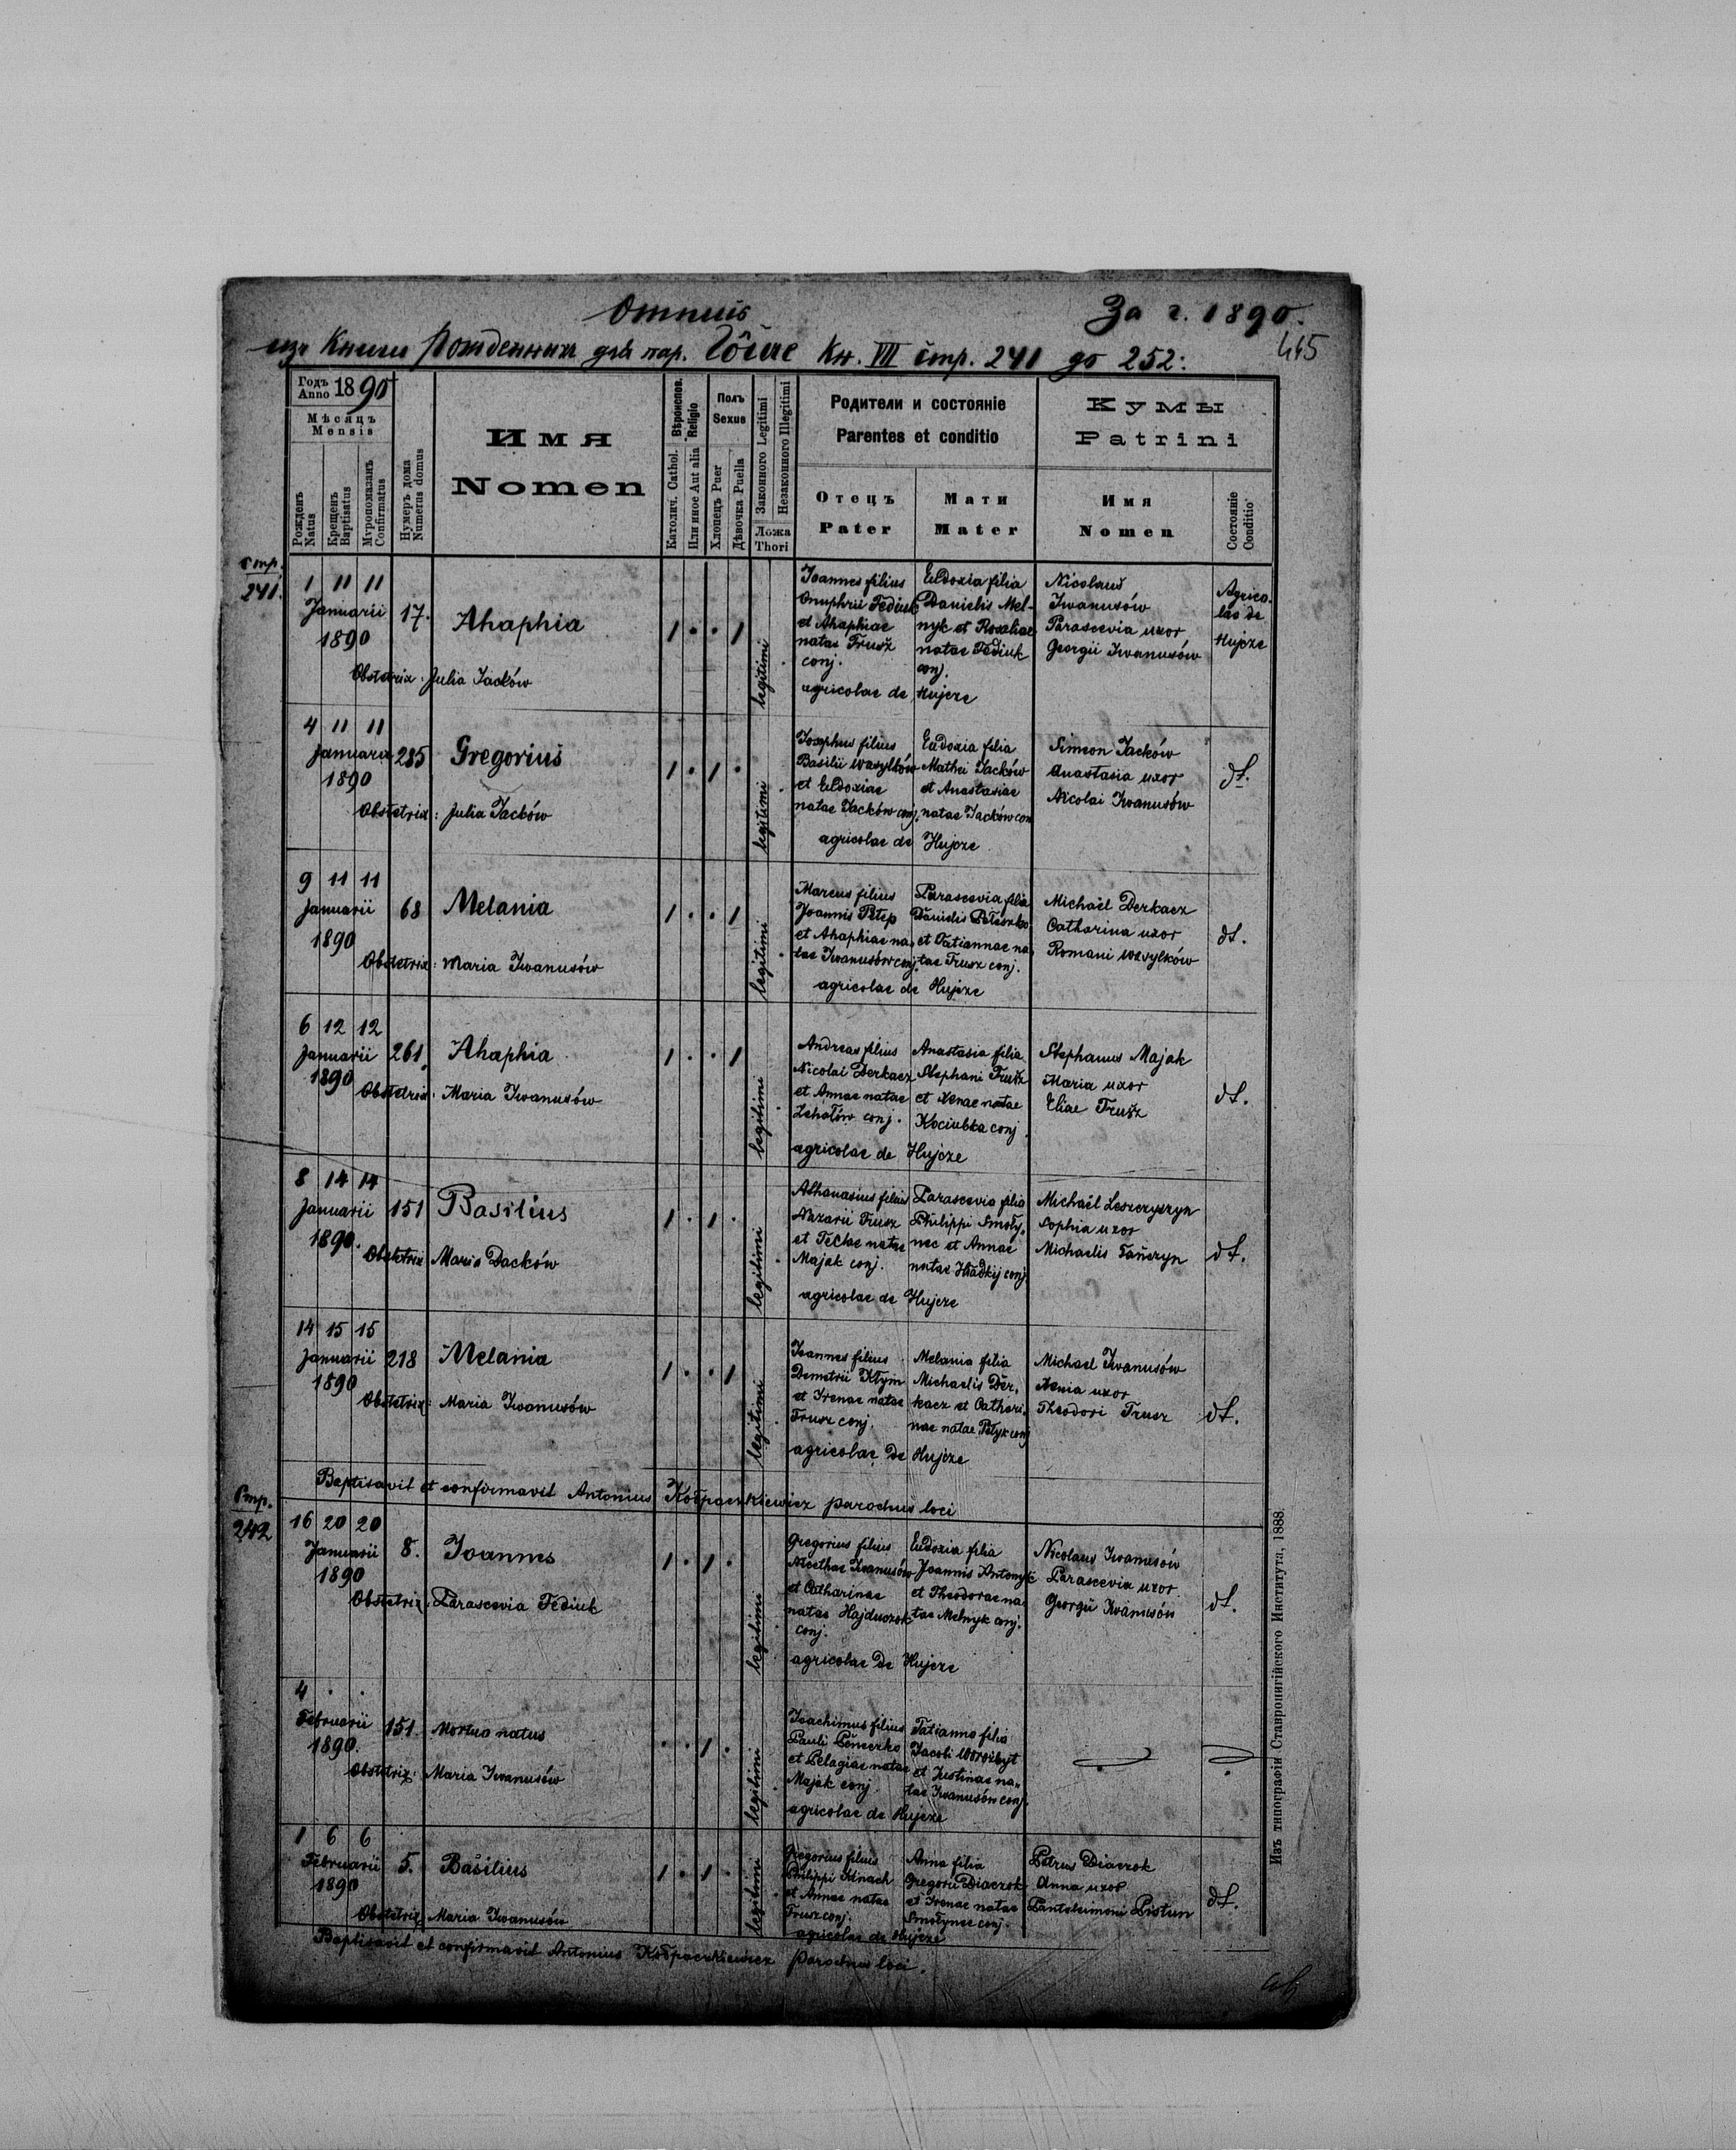 Отпись
За г. 1890.
изъ Книги Рожденныхъ для пар. Гôйче Кн. VII стр. 241 до 252:
445
Годъ Anno 1890
Мѣсяцъ
Mensis
Рожденъ Natus
Крещенъ Baptisatus
Муропомазанъ Confirmatus
Нумеръ дома Numerus domus
Имя
Nomen
Вѣроиспов. Religio
Католич. Cathol.
Или иное Aut alia
Полъ
Sexus
Хлопецъ Puer
Дѣвочка Puella
Законного Legitimi
Незаконного Illegitimi
Ложа
Thori
Родители и состояніе
Parentes et conditio
Отецъ
Pater
Мати
Mater
Кумы
Patrini
Имя
Nomen
Состояніе
Conditio
Стр.
241.
1 11 11
Januarii
1890
17.
Ahaphia
1 . . 1
legitimi
Obstetrix: Julia Jacków
Joannes filius
Onuphrii Fediuk
et Ahaphiae
natae Trusz
conj.
Eudoxia filia
Danielis Mel-
nyk et Rosaliae
natae Fediuk
conj.
agricolae de Hujcze
Nicolaus
Iwanusów
Parascevia uxor
Georgii Iwanusów
Agrico-
lae de
Hujcze
4 11 11
Januarii
1890
285
Gregorius
1 . 1 .
legitimi
Obstetrix: Julia Jacków
Josephus filius
Basilii Wasylków
et Eudoxiae
natae Jacków conj.
Eudoxia filia
Mathei Jacków
et Anastasiae
natae Jacków con
agricolae de Hujcze
Simeon Jacków
Anastasia uxor
Nicolai Iwanusów
dt.
9 11 11
Januarii
1890
68
Melania
1 . . 1
legitimi
Obstetrix: Maria Iwanusów
Marcus filius
Joannis Petep
et Ahaphiae na-
tae Iwanusów conj.
Parascevia filia
Danielis
et Tatiannae na-
tae Trusz conj.
agricolae de Hujcze
Michaël Derkacz
Catharina uxor
Romani Wasylków
dt.
6 12 12
Januarii
1890
261
Ahaphia
1 . . 1
legitimi
Obstetrix: Maria Iwanusów
Andreas filius
Nicolai Derkacz
et Annae natae
conj.
Anastasia filia
Stephani Trusz
et Xenae natae
Kociubka conj.
agricolae de Hujcze
Stephanus Majak
Maria uxor
Eliae Trusz
dt.
8 14 14
Januarii
1890.
151
Basilius
1 . 1 .
legitimi
Obstetrix Maria Dacków
Athanasius filius
Nazarii Trusz
et Teclae natae
Majak conj.
Parascevia filia
Philippi Smoły-
nec et Annae
natae Hładkij conj
agricolae de Hujcze
Michaël Leszczyszyn
Sophia uxor
Michaelis
dt.
14 15 15
Januarii
1890
218
Melania
1 . . 1
legitimi
Obstetrix: Maria Iwanusów
Joannes filius
Demetrii Kłym
et Irenae natae
Trusz conj.
Melania filia
Michaelis Der-
kacz et Cathari-
nae natae conj
agricolae de Hujcze
Michael Iwanusów
Xenia uxor
Theodori Trusz
dt.
Baptisavit et confirmavit Antonius Kołpaczkiewicz parochus loci
Стр.
242
16 20 20
Januarii
1890
8.
Joannes
1 . 1 .
legitimi
Obstetrix: Parascevia Fediuk
Gregorius filius
Iwanusów
et Catharinae
natae Hajduczok
conj.
Eudoxia filia
Joannis Antonyk
et Theodorae na-
tae Melnyk conj.
agricolae de Hujcze
Nicolaus Iwanusów
Parascevia uxor
Georgii Iwanusów
dt.
4 . .
Februarii
1890.
151.
Mortuo natus
. . 1 .
legitimi
Obstetrix: Maria Iwanusów
Joachimus filius
Pauli
et Pelagiae natae
Majak conj.
Tatianna filia
Jacobi Worożbyt
et Justinae na-
tae Iwanusów conj.
agricolae de Hujcze
1 6 6
Februarii
1890
5.
Basilius
1 . 1 .
legitimi
Obstetrix Maria Iwanusów
Gregorius filius
Philippi Hnach
et Annae natae
Trusz conj.
Anna filia
Gregorii Diaczok
et Irenae natae
Smołynec conj.
agricolae de Hujcze
Petrus Diaczok
Anna uxor
Panteleimoni Pistun
dt.
Baptisavit et confirmavit Antonius Kołpaczkiewicz parochus loci.
Изъ типографіи Ставропигійского Института, 1888.